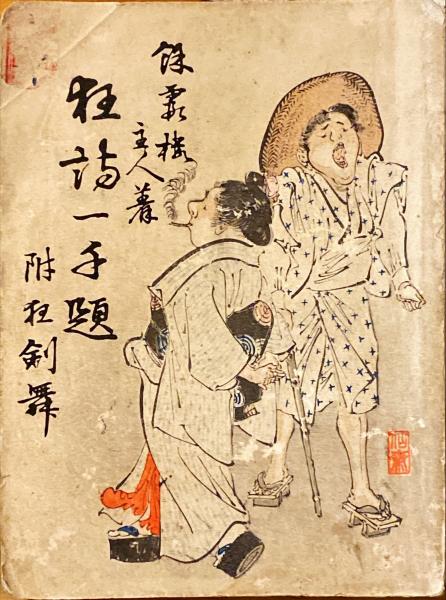 餘霞楼
主人著
狂詩一千題
附狂剣舞